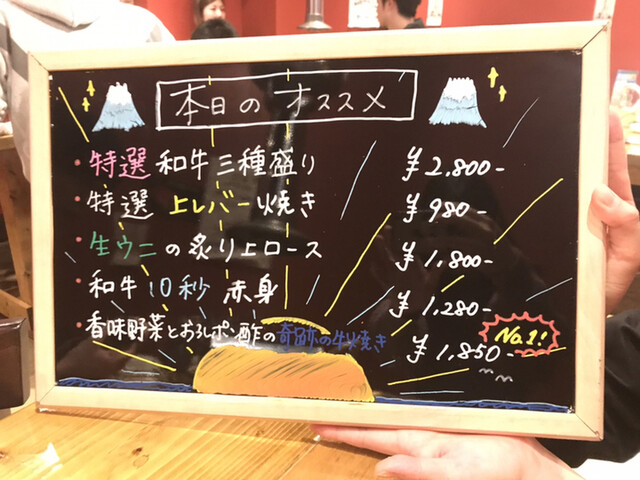 本日のオススメ
・特選 和牛三種盛り ¥2,800-
・特選 上レバー焼き ¥980-
・生ウニの炙り上ロース ¥1,800-
・和牛10秒赤身 ¥1,280-
・香味野菜とおろしポン酢の奇跡の牛焼き ¥1,850-
No.1!